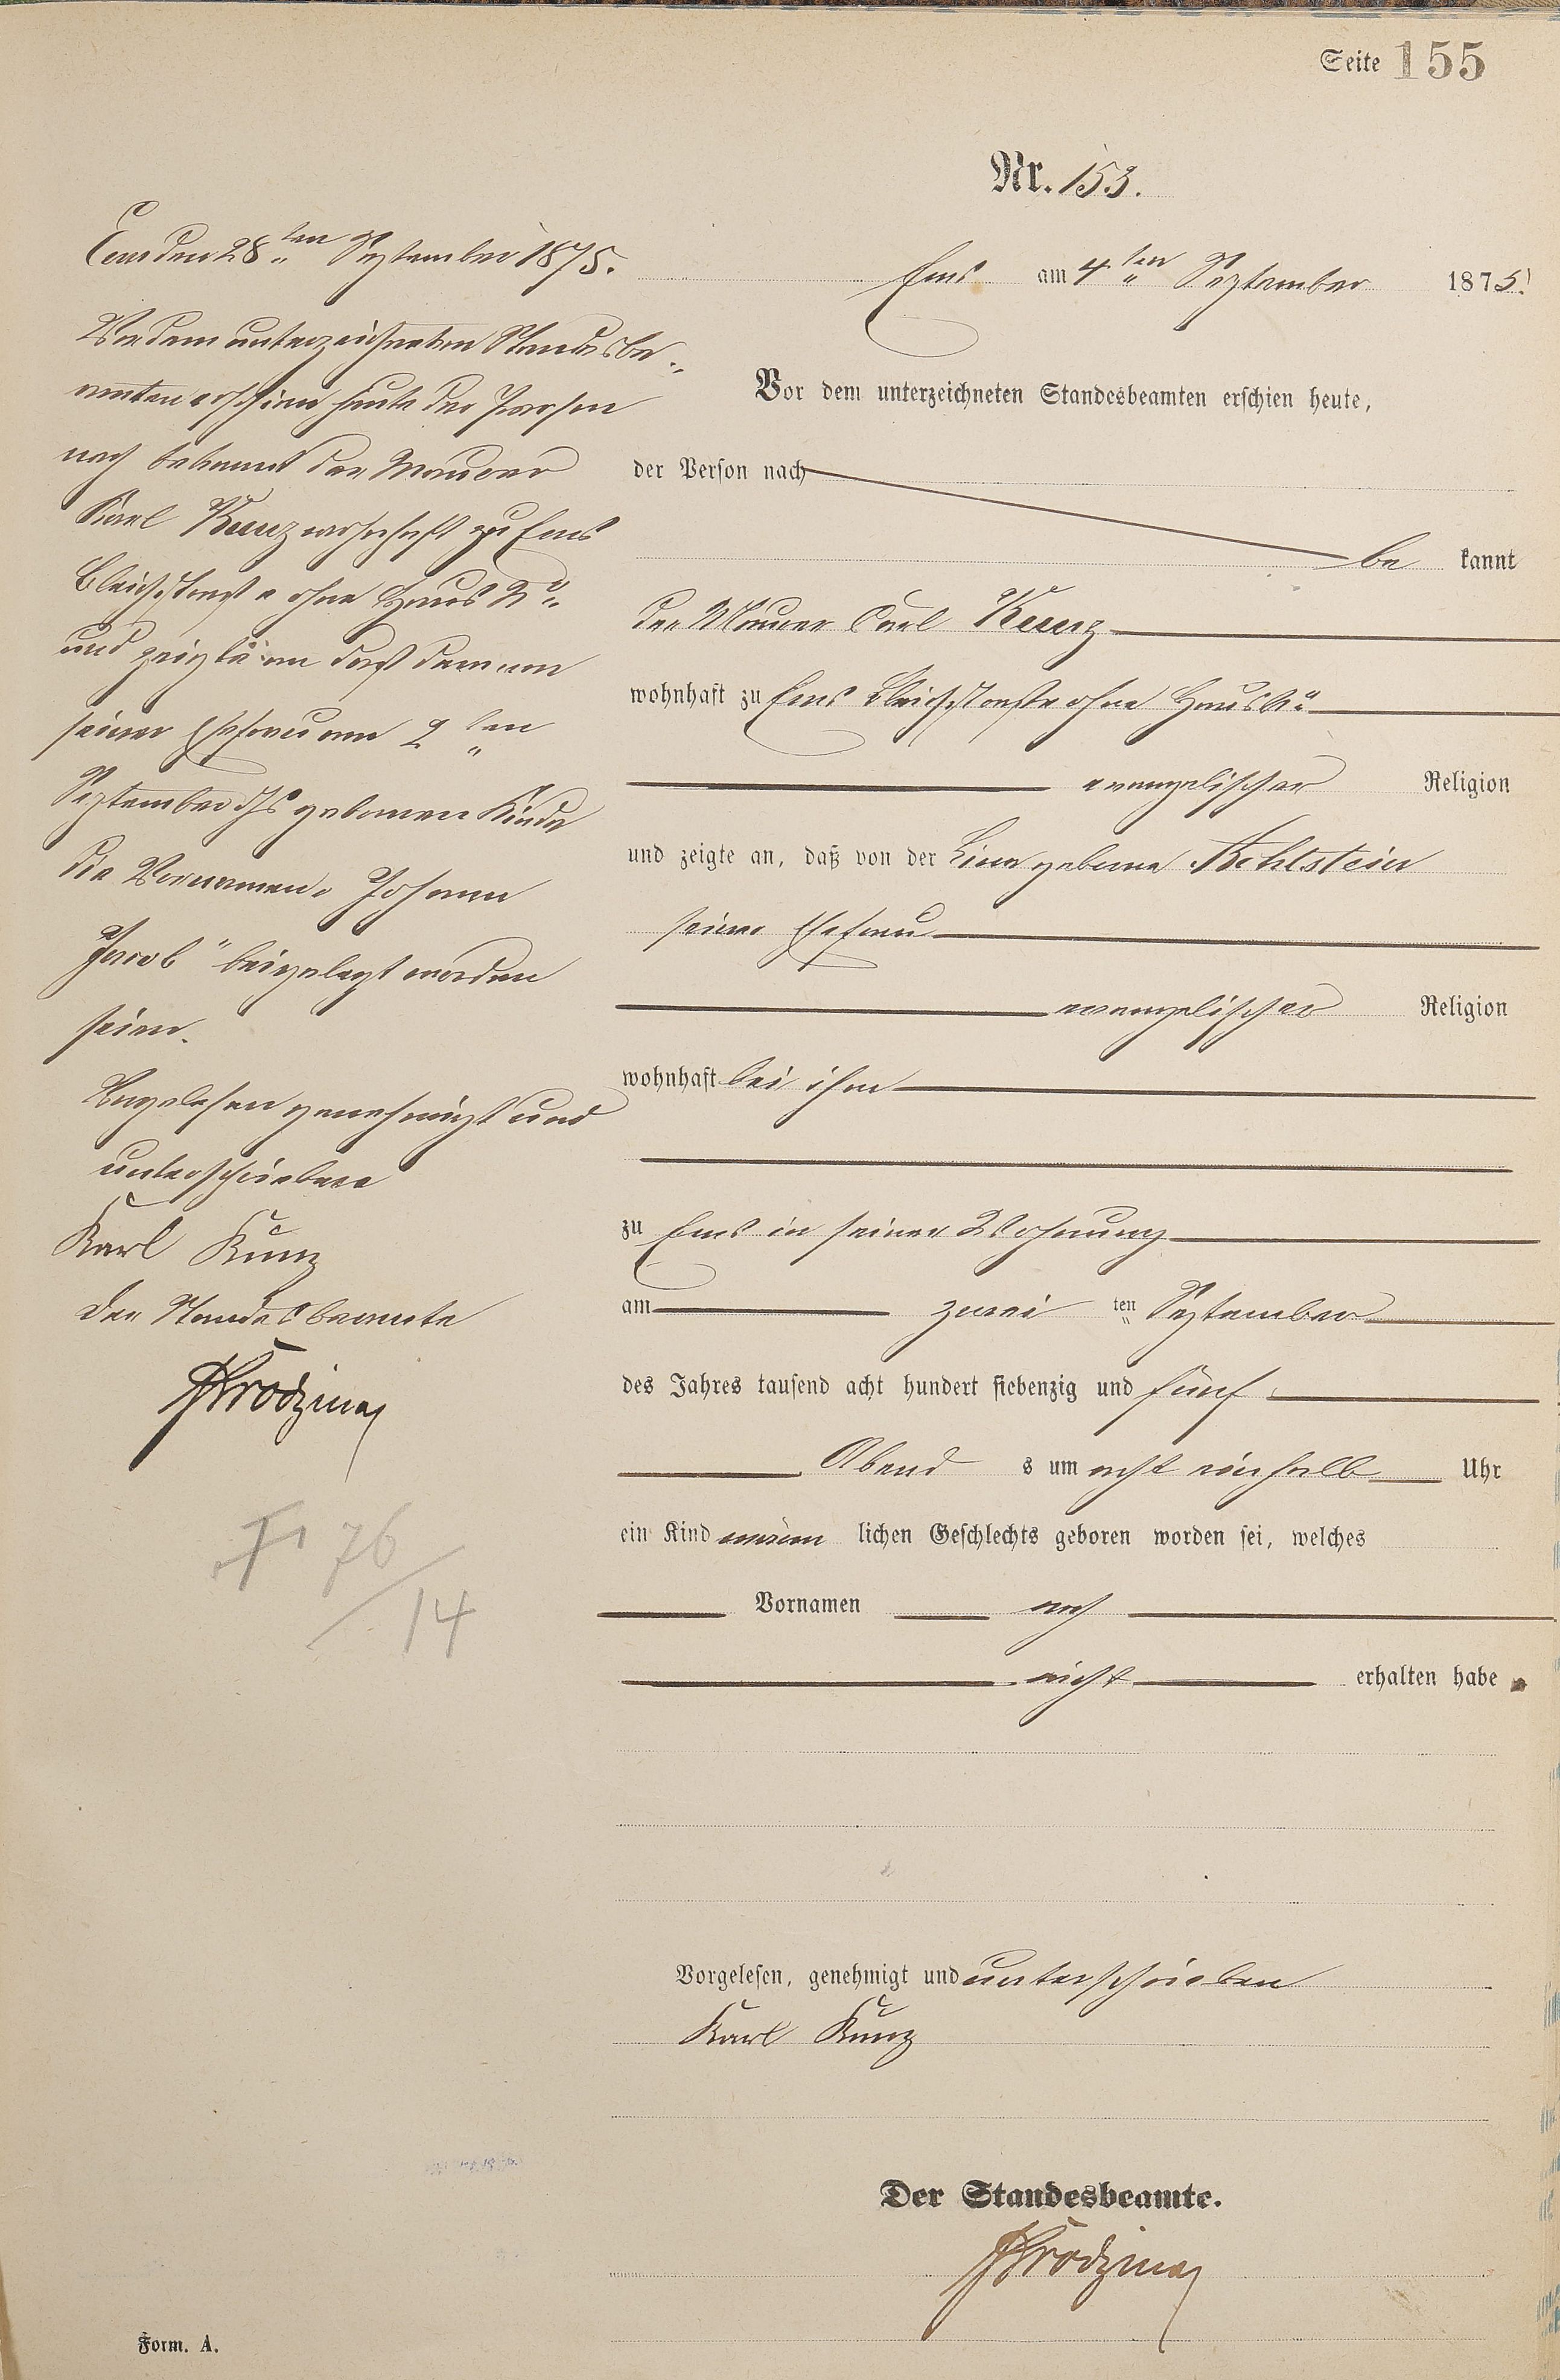 Seite 155
Nr. 153.
Ems den 28ten September 1875.
Vor dem unterzeichneten Standesbe-
amten erschien heute der Person
nach bekannt der Maurer
Karl Kunz wohnhaft zu Ems
Bleichstraße ohne Haus No
und zeigte an daß dem von
seiner Ehefrau am 2ten
September d Js geborenen Kinde
die Vornamen „Johann
Jacob" beigelegt worden
seien.
Vorgelesen genehmigt und
unterschrieben
Karl Kunz
Der Standesbeamte
76
14
Ems am 4ten September 1875.
Vor dem unterzeichneten Standesbeamten erschien heute,
der Person nach
be kannt
der Maurer Carl Kunz
wohnhaft zu Ems Bleichstraße ohne Haus No
evangelischer Religion
und zeigte an, daß von der Lina geborne Kohlstein
seiner Ehefrau
evangelischer Religion
wohnhaft bei ihm
zu Ems in seiner Wohnung
am zwei ten September
des Jahres tausend acht hundert siebenzig und fünf
Abend s um acht einhalb Uhr
ein Kind männ lichen Geschlechts geboren worden sei, welches
Vornamen noch
nicht erhalten habe
Vorgelesen, genehmigt und unterschrieben
Karl Kunz
Der Standesbeamte.
Form. A.